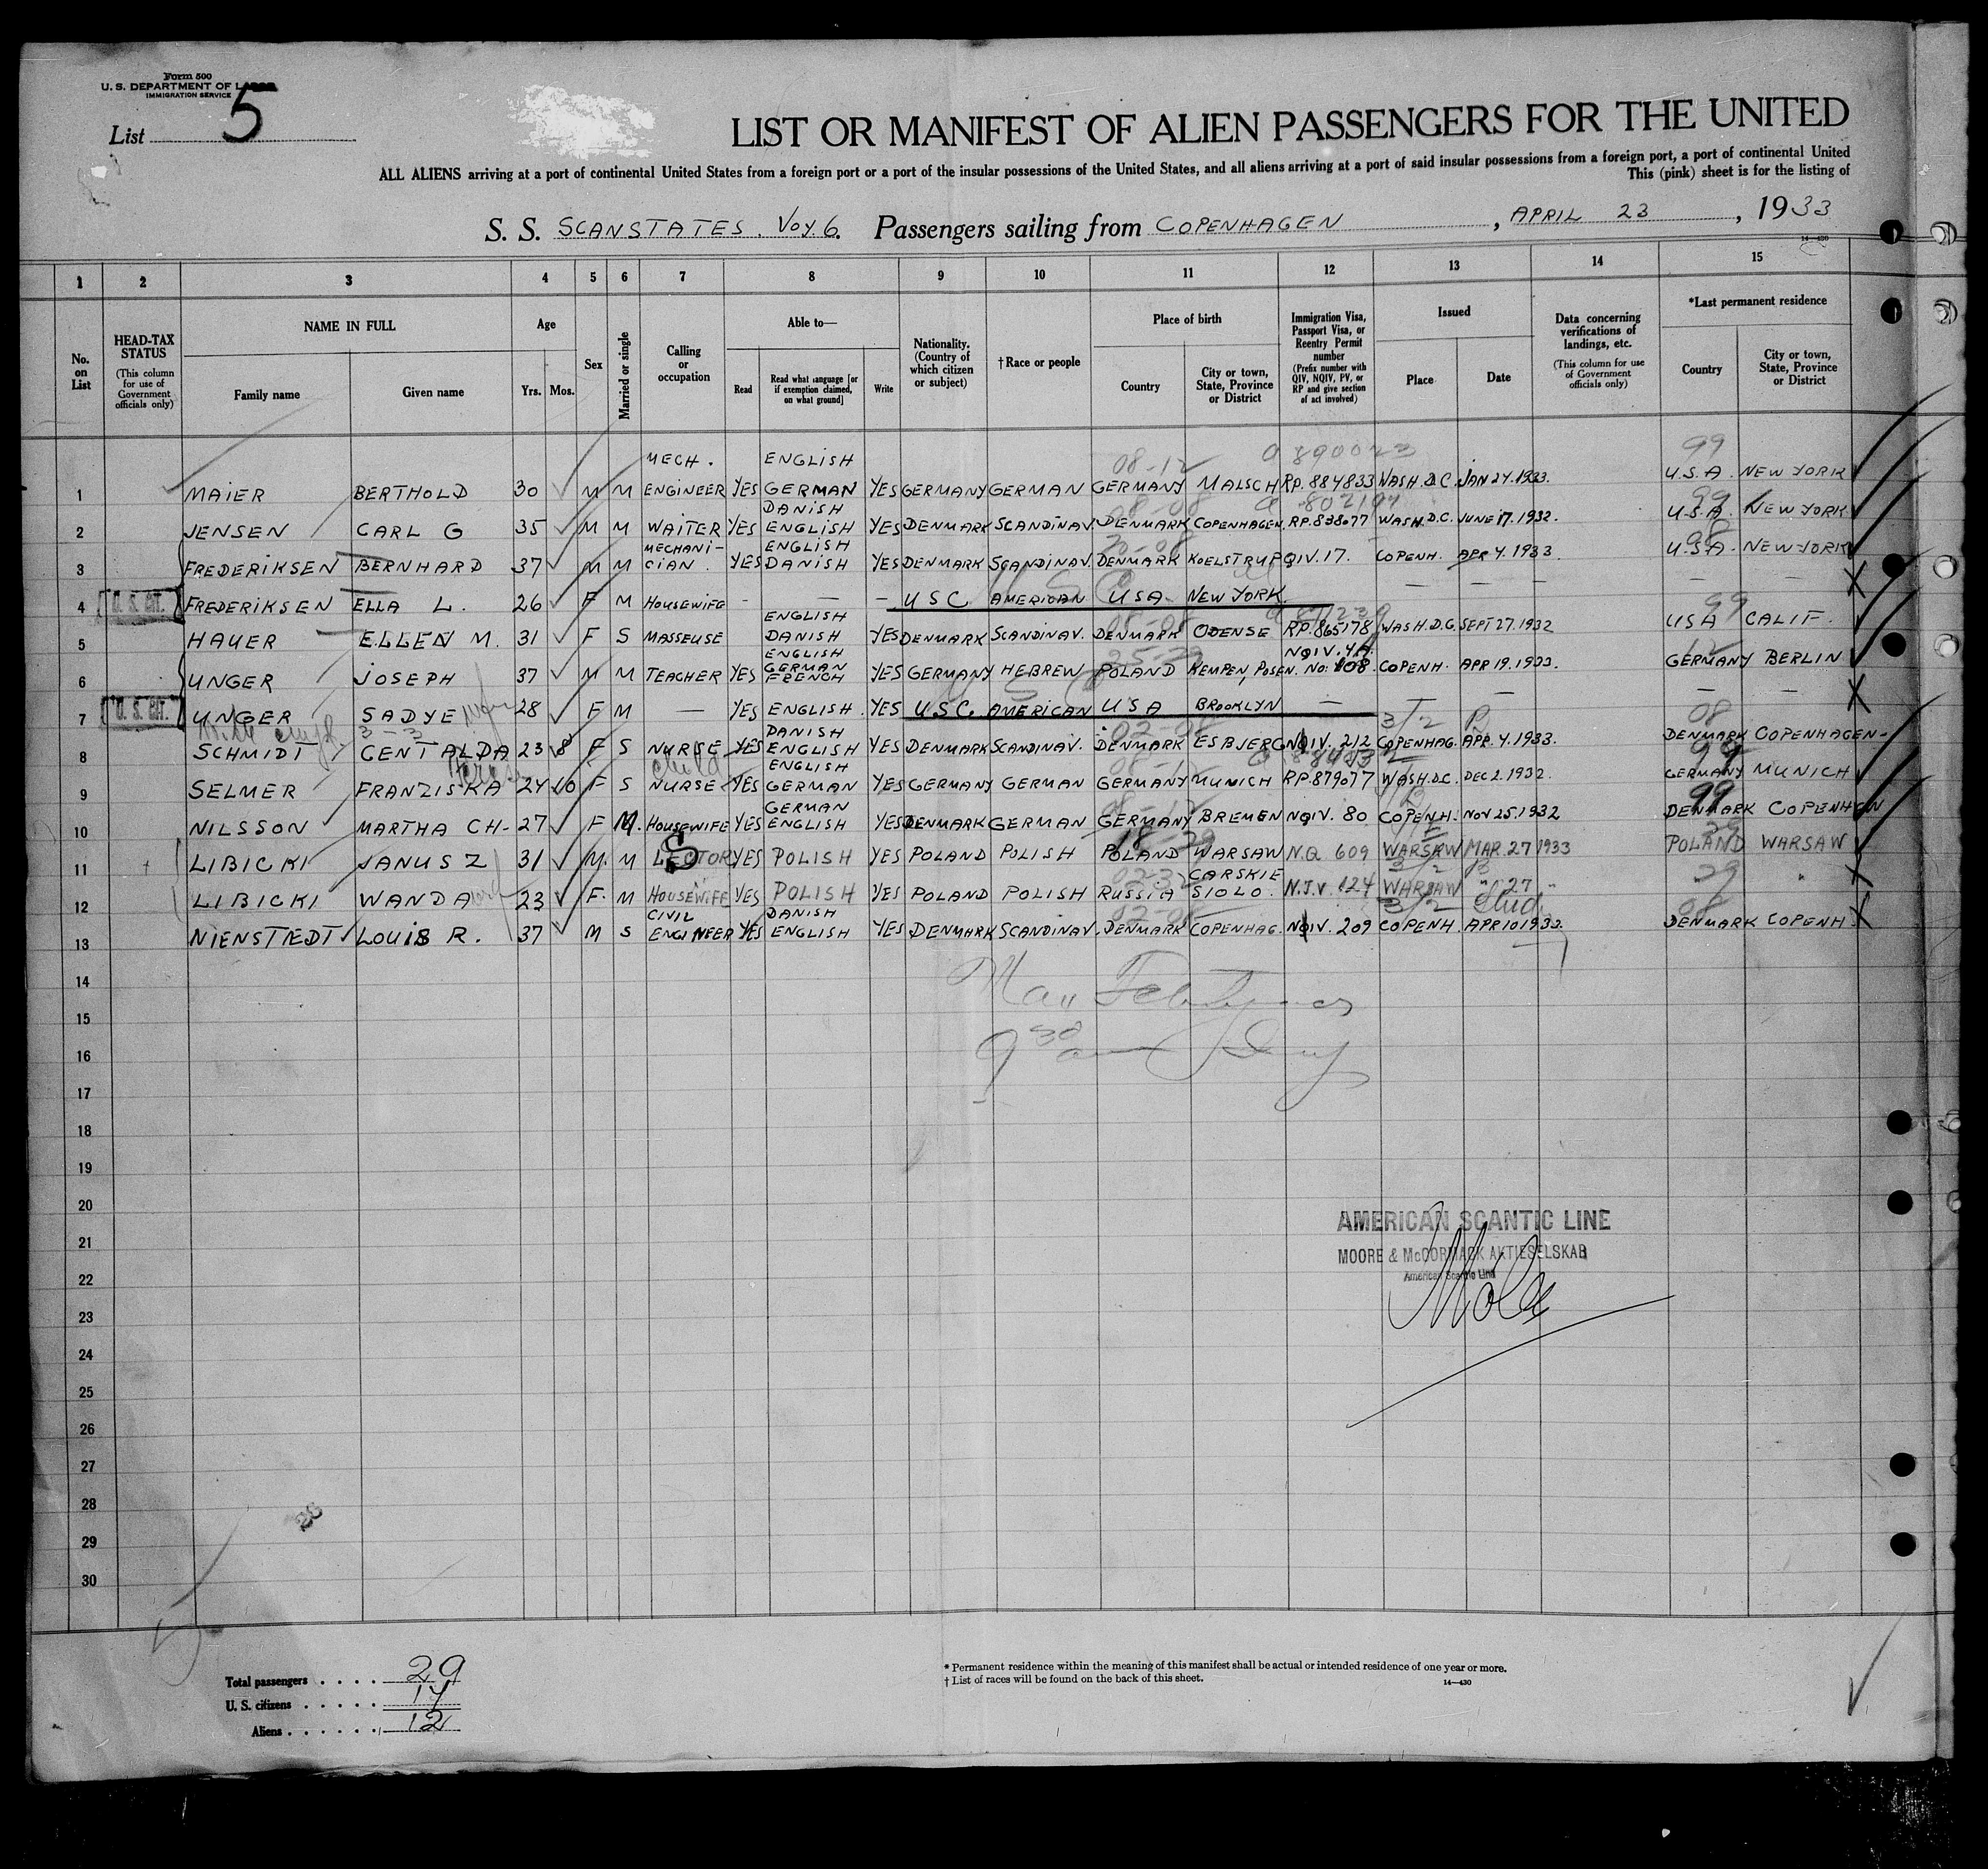 Form 500
U. S. DEPARTMENT OF LABOR
IMMIGRATION SERVICE
List 5
LIST OR MANIFEST OF ALIEN PASSENGERS FOR THE UNITED
ALL ALIENS arriving at a port of continental United States from a foreign port or a port of the insular possessions of the United States, and all aliens arriving at a port of said insular possessions from a foreign port, a port of continental United
This (pink) sheet is for the listing of
S. S. SCANSTATES. VOY. 6. Passengers sailing from COPENHAGEN, APRIL 23, 1933
14—430
1 2 3 4 5 6 7 8 9 10 11 12 13 14 15
No. on List
HEAD-TAX STATUS (This column for use of Government officials only)
NAME IN FULL
Family name Given name
Age
Yrs. Mos.
Sex
Married or single
Calling or occupation
Able to—
Read Read what language [or if exemption claimed, on what ground] Write
Nationality. (Country of which citizen or subject)
†Race or people
Place of birth
Country City or town, State, Province or District
Immigration Visa, Passport Visa, or Reentry Permit number (Prefix number with QIV, NQIV, PV, or RP and give section of act involved)
Issued
Place Date
Data concerning verifications of landings, etc. (This column for use of Government officials only)
*Last permanent residence
Country City or town, State, Province or District
08-12 a 890023 99
1 MAIER BERTHOLD 30 M M MECH. ENGINEER YES ENGLISH GERMAN YES GERMANY GERMAN GERMANY MALSCH RP. 884833 WASH. D.C. JAN 24. 1933. U.S.A. NEW YORK
08-08 99
2 JENSEN CARL G 35 M M WAITER YES DANISH ENGLISH YES DENMARK SCANDINAV. DENMARK COPENHAGEN. RP. 838077 WASH. D.C. JUNE 17. 1932. U.S.A. NEW YORK
3 FREDERIKSEN BERNHARD 37 M M MECHANICIAN. YES ENGLISH DANISH YES DENMARK SCANDINAV. DENMARK KOELSTRUP QIV. 17. COPENH. APR 4. 1933. U.S.A. NEW YORK
4 U. S. CIT. FREDERIKSEN ELLA L. 26 F M HOUSEWIFE - — - U S C AMERICAN USA NEW YORK. — — — — —
99
5 HAUER ELLEN M. 31 F S MASSEUSE ENGLISH DANISH YES DENMARK SCANDINAV. DENMARK ODENSE RP. 865178 WASH. D.C. SEPT 27. 1932 USA CALIF.
6 UNGER JOSEPH 37 M M TEACHER YES ENGLISH GERMAN FRENCH YES GERMANY HEBREW POLAND KEMPEN, POSEN. NQIV. 4A. NO: 108. COPENH. APR 19. 1933. GERMANY BERLIN
7 U. S. CIT. UNGER SADYE 28 F M — YES ENGLISH. YES U S C. AMERICAN USA BROOKLYN — — — —
3/2 08
3-3
8 SCHMIDT GENTALDA 23 8 F S NURSE YES DANISH ENGLISH YES DENMARK SCANDINAV. DENMARK ESBJERG NQIV. 212 COPENHAG. APR. 4. 1933. DENMARK COPENHAGEN-
child 99
9 SELMER FRANZISKA 24 10 F S NURSE YES ENGLISH GERMAN YES GERMANY GERMAN GERMANY MUNICH RP 879077 WASH. D.C. DEC 2. 1932. GERMANY MUNICH
99
10 NILSSON MARTHA CH- 27 F M. HOUSEWIFE YES GERMAN ENGLISH YES DENMARK GERMAN GERMANY BREMEN NQIV. 80 COPENH. NOV 25. 1932 DENMARK COPENHGN
11 LIBICKI JANUSZ 31 M. M LECTOR YES POLISH YES POLAND POLISH POLAND WARSAW N.Q 609 WARSAW MAR. 27 1933 POLAND WARSAW
3/2 29
12 LIBICKI WANDA 23 F. M HOUSEWIFE YES POLISH YES POLAND POLISH RUSSIA CARSKIE SIOLO. N.I.V. 124 WARSAW " 27 " "
3/2 Stud. 08
13 NIENSTIEDT LOUIS R. 37 M S CIVIL ENGINEER YES DANISH ENGLISH YES DENMARK SCANDINAV. DENMARK COPENHAG. NQIV. 209 COPENH. APR 10 1933. DENMARK COPENH.
14
15
16
17
18
19
20
AMERICAN SCANTIC LINE
21
MOORE & McCORMACK AKTIESELSKAB
American Scantic Line
22
23
24
25
26
27
28
29
30
Total passengers . . . . 29
U. S. citizens . . . . . 17
Aliens . . . . . . 12
* Permanent residence within the meaning of this manifest shall be actual or intended residence of one year or more.
† List of races will be found on the back of this sheet.
14—430